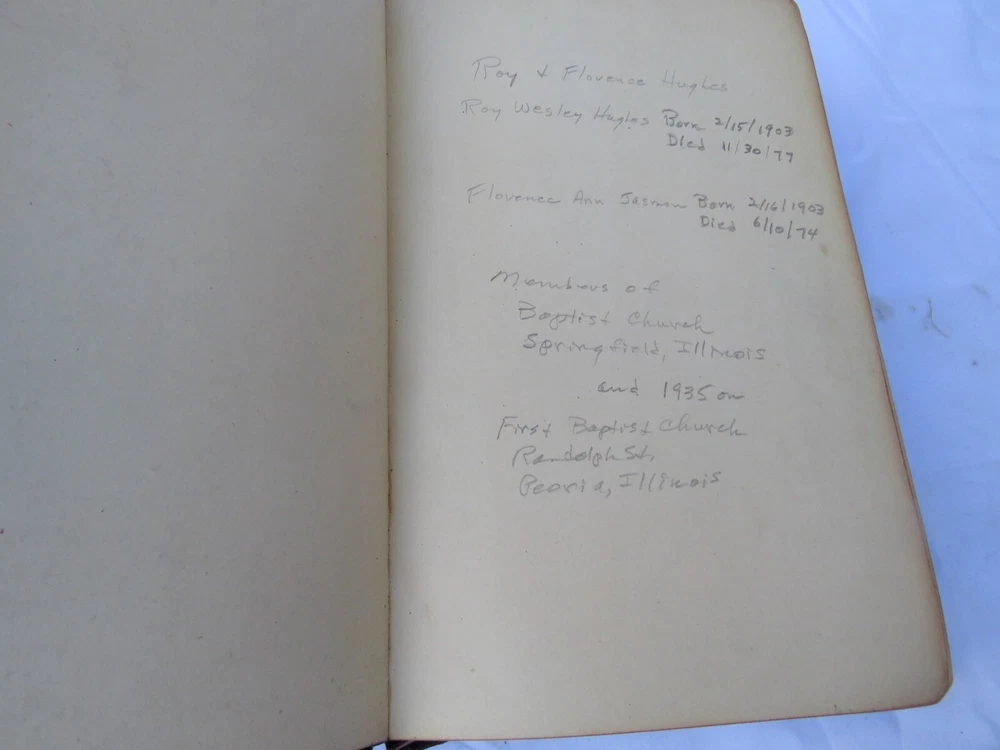 Roy & Florence Hughes
Roy Wesley Hughes Born 2/15/1903
Died 11/30/77
Florence Ann Jasmon Born 2/16/1903
Died 6/10/74
Members of
Baptist Church
Springfield, Illinois
and 1935 on
First Baptist Church
Randolph St.
Peoria, Illinois